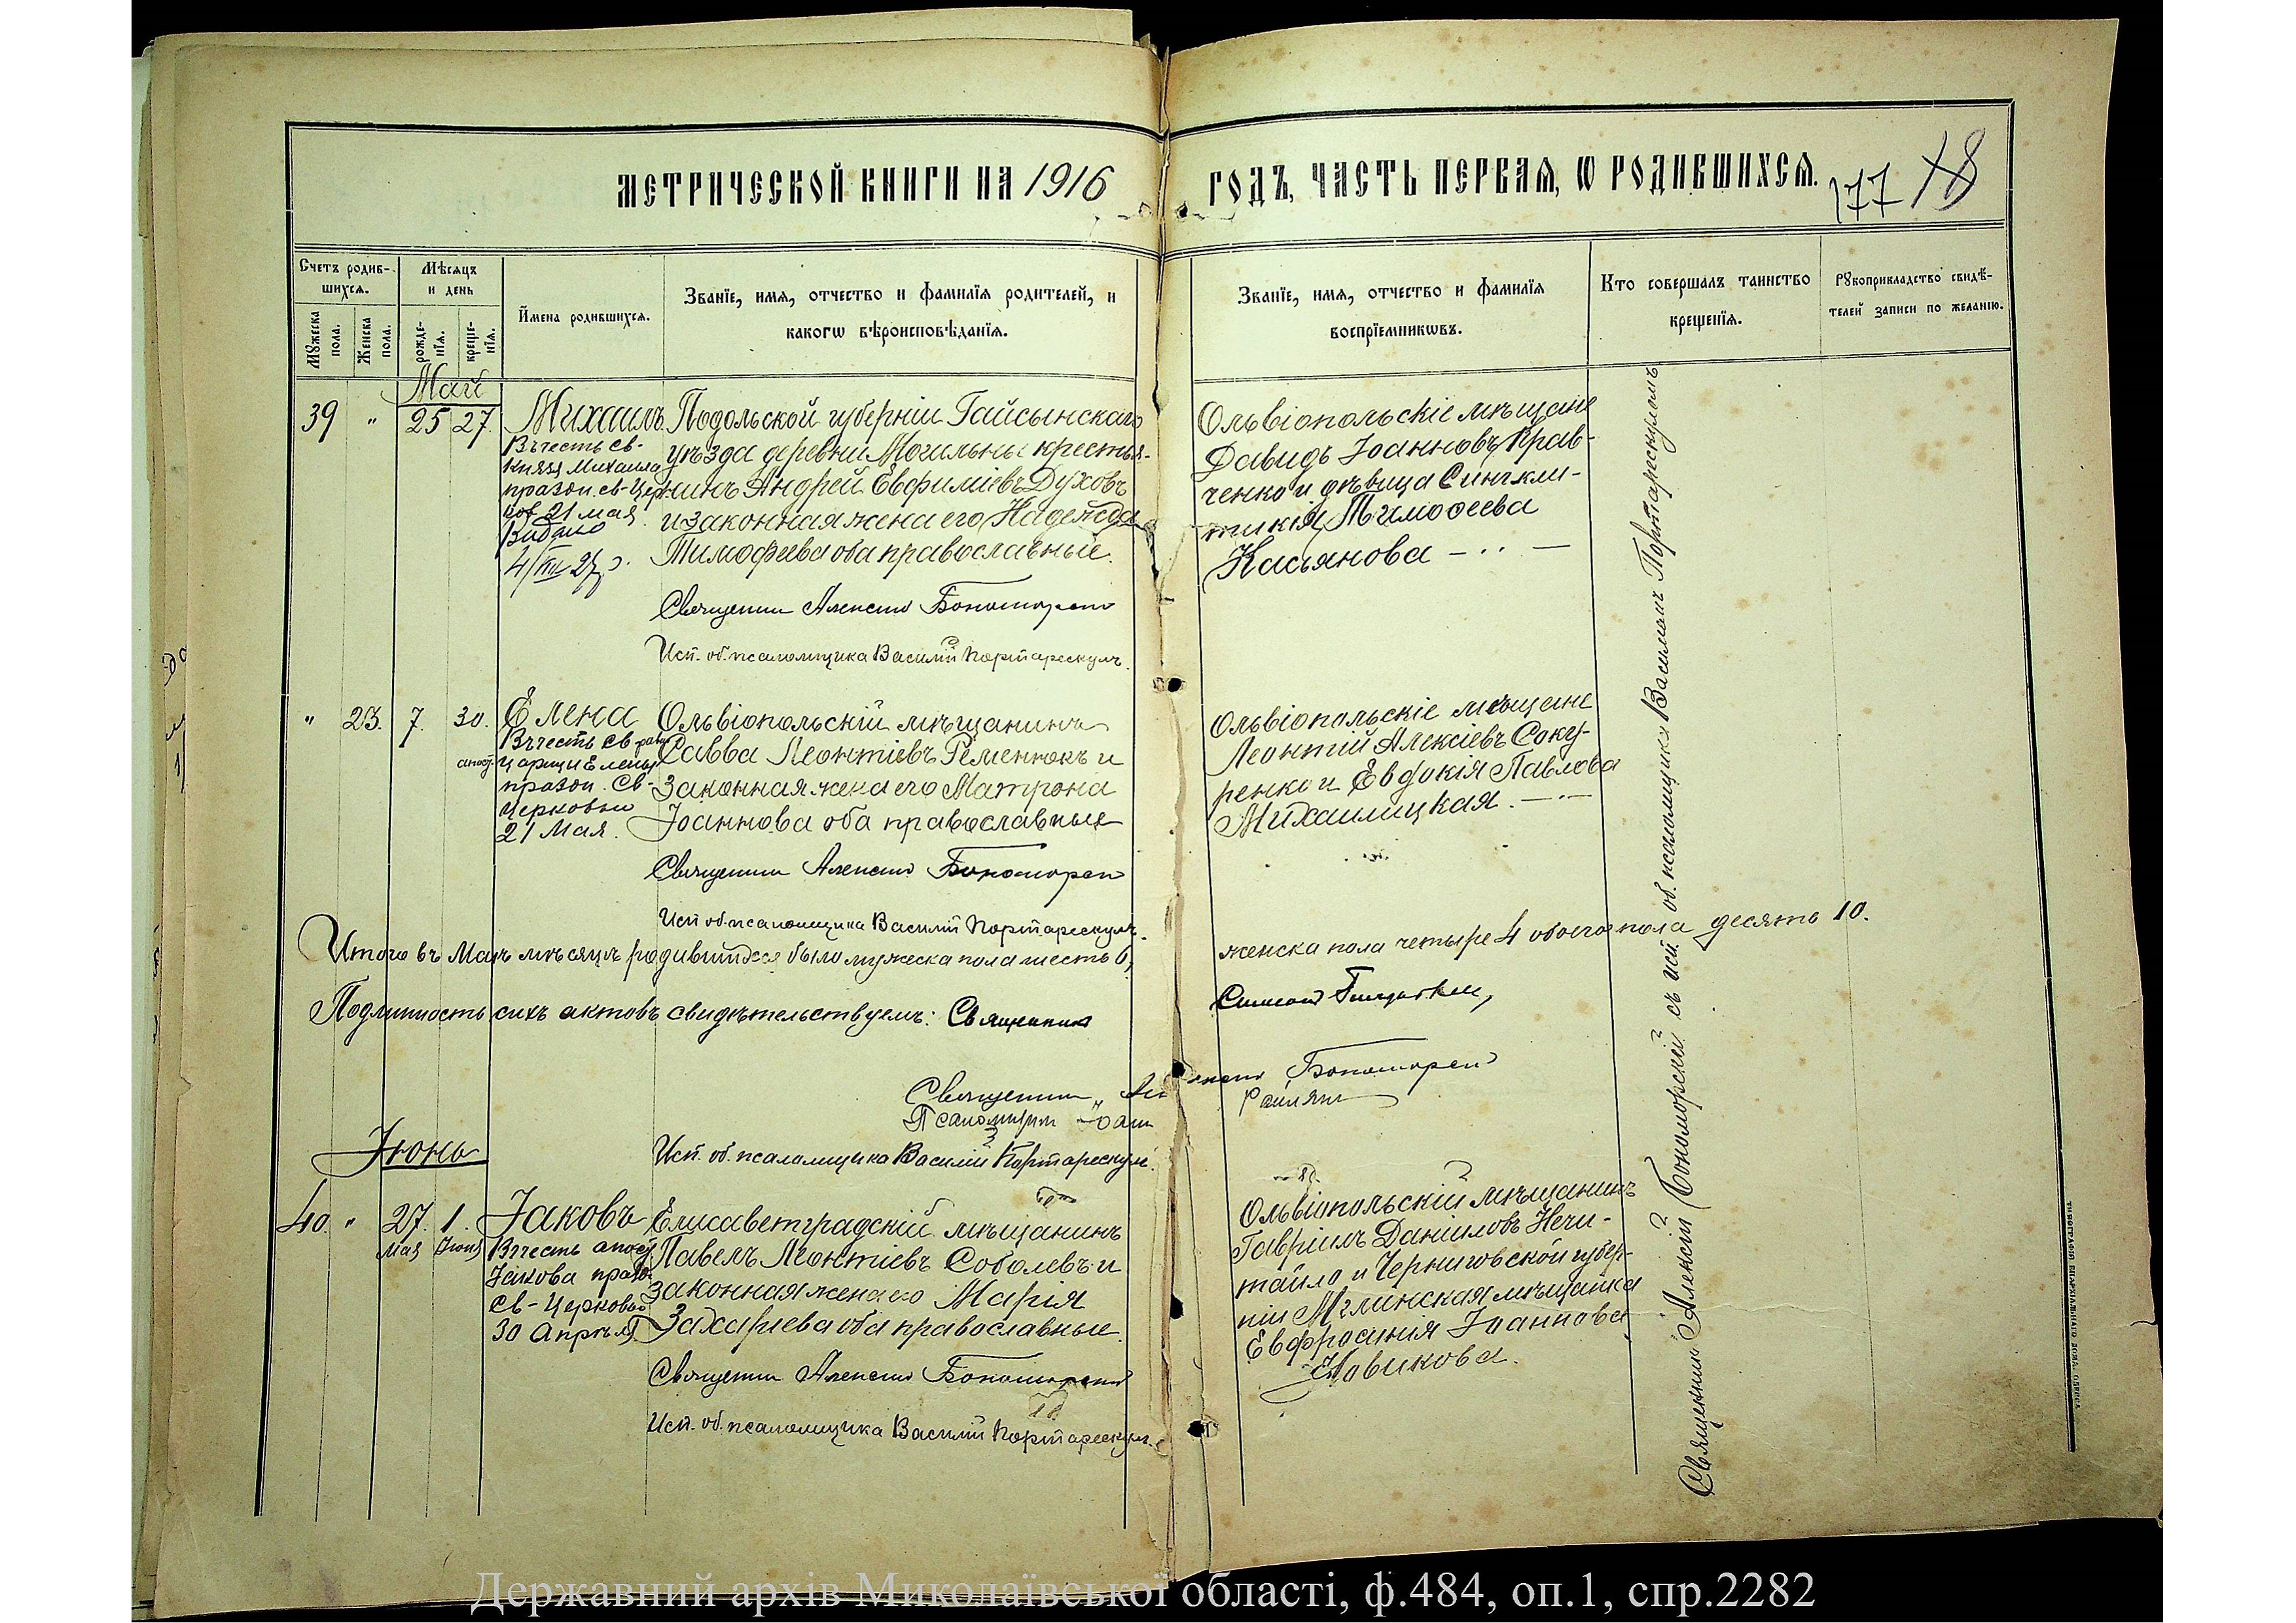 МЕТРИЧЕСКОЙ КНИГИ НА 1916
ГОДЪ, ЧАСТЬ ПЕРВАЯ, Ѡ РОДИВШИХСЯ.
177 78
Счетъ родив-
шихся.
Мѣсяцъ
и день
Имена родившихся.
Званїе, имя, отчество и фамилїя родителей, и
какогѡ вѣроисповѣданїя.
Мꙋжеска
пола.
Женска
пола.
рожде-
нїя.
креще-
нїя.
Званїе, имя, отчество и фамилїя
воспрїемникѡвъ.
Кто совершалъ таинство
крещенїя.
Рꙋкоприкладство свидѣ-
телей записи по желанїю.
Май
39 " 25 27.
Михаилъ
Въ честь св.
Князя Михаила
празд. св. Цер-
ков 21 мая.
Видано
Подольской губерніи Гайсынскаго
уѣзда деревни Могильны крестья-
нинъ Андрей Евфиміевъ Духовъ
и законная жена его Надежда
Тимофеева оба православные.
Священник Алексий Бономорский
Исп. об. псаломщика Василий Портарескулъ.
Ольвіопольскіе мѣщане
Давидъ Іоанновъ Крав-
ченко и дѣвица Синкли-
тикія Тимоѳеева
Касьянова
" 23. 7. 30.
Елена
Въ честь св. равно
апост. Царицы Елены
празд. Св.
Церковью
21 Мая.
Ольвіопольскій мѣщанинъ
Савва Леонтіевъ Ременюкъ и
законная жена его Матрона
Іоаннова оба православные
Священник Алексий Бономорский
Исп. об. псаломщика Василий Портарескулъ.
Ольвіопольскіе мѣщане
Леонтій Алексіевъ Соку-
ренко и Евдокія Павлова
Михаилицкая.
Итого въ Маѣ мѣсяцѣ родившихся было мужеска пола шесть 6,
женска пола четыре 4 обоего пола десять 10.
Подлинность сихъ актовъ свидѣтельствуемъ: Священник
Священник Алексий Бономорский
Исп. об. псаломщика Василій Портарескулъ.
Іюнь
40. " 27. 1.
Мая Іюня
Іаковъ
Въ честь апост.
Іакова празд.
св. Церковью
30 Апрѣля.
Елисаветградскій мѣщанинъ
Павелъ Леонтіевъ Соболевъ и
законная жена его Марія
Захаріева оба православные.
Священник Алексий Бономорский
Исп. об. псаломщика Василий Портарескулъ.
Ольвіопольскій мѣщанинъ
Гавріилъ Даниловъ Нечи-
тайло и Черниговской губер-
ніи Мглинская мѣщанка
Евфросинія Іоаннова
Новикова.
Священник Алексій Бономорскій съ исп. об. псаломщика Василіемъ Портарескуломъ
Державний архів Миколаївської області, ф.484, оп.1, спр.2282